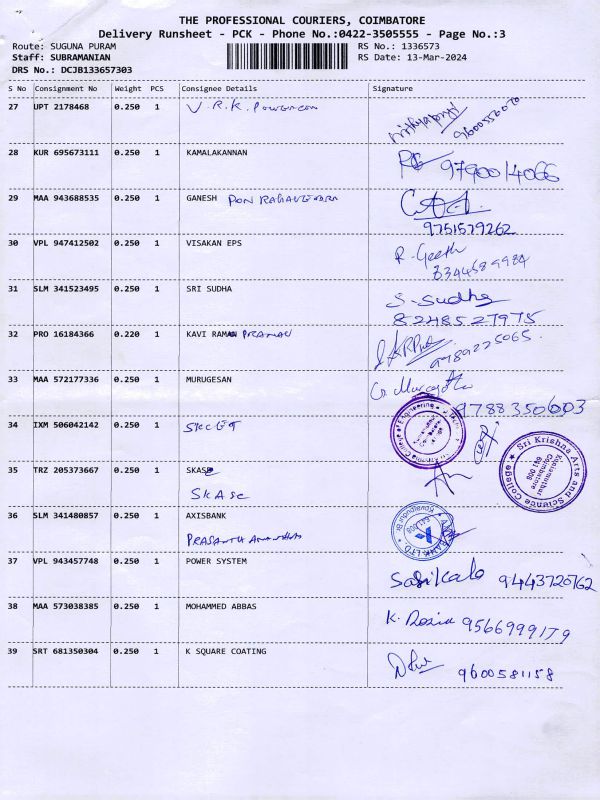 THE PROFESSIONAL COURIERS, COIMBATORE
Delivery Runsheet - PCK - Phone No.:0422-3505555 - Page No.:3
Route: SUGUNA PURAM
RS No.: 1336573
Staff: SUBRAMANIAN
RS Date: 13-Mar-2024
DRS No.: DCJB133657303
S No Consignment No Weight PCS Consignee Details Signature
27 UPT 2178468 0.250 1 V.R.K. Powercon
28 KUR 695673111 0.250 1 KAMALAKANNAN 9790014066
29 MAA 943688535 0.250 1 GANESH
9751579262
30 VPL 947412502 0.250 1 VISAKAN EPS R. Geeth
31 SLM 341523495 0.250 1 SRI SUDHA S. Sudha
8248527975
32 PRO 16184366 0.220 1 KAVI RAMAN PRANAV
33 MAA 572177336 0.250 1 MURUGESAN
9788350003
34 IXM 506042142 0.250 1 SKCET
35 TRZ 205373667 0.250 1 SKASC
SKASC
Sri Krishna Arts and Science College
Kuniamuthur
Coimbatore
641 008
36 SLM 341480857 0.250 1 AXISBANK
AXIS BANK LTD
37 VPL 943457748 0.250 1 POWER SYSTEM Sasikala 9443720762
38 MAA 573038385 0.250 1 MOHAMMED ABBAS 9566999179
39 SRT 681350304 0.250 1 K SQUARE COATING 9600581158